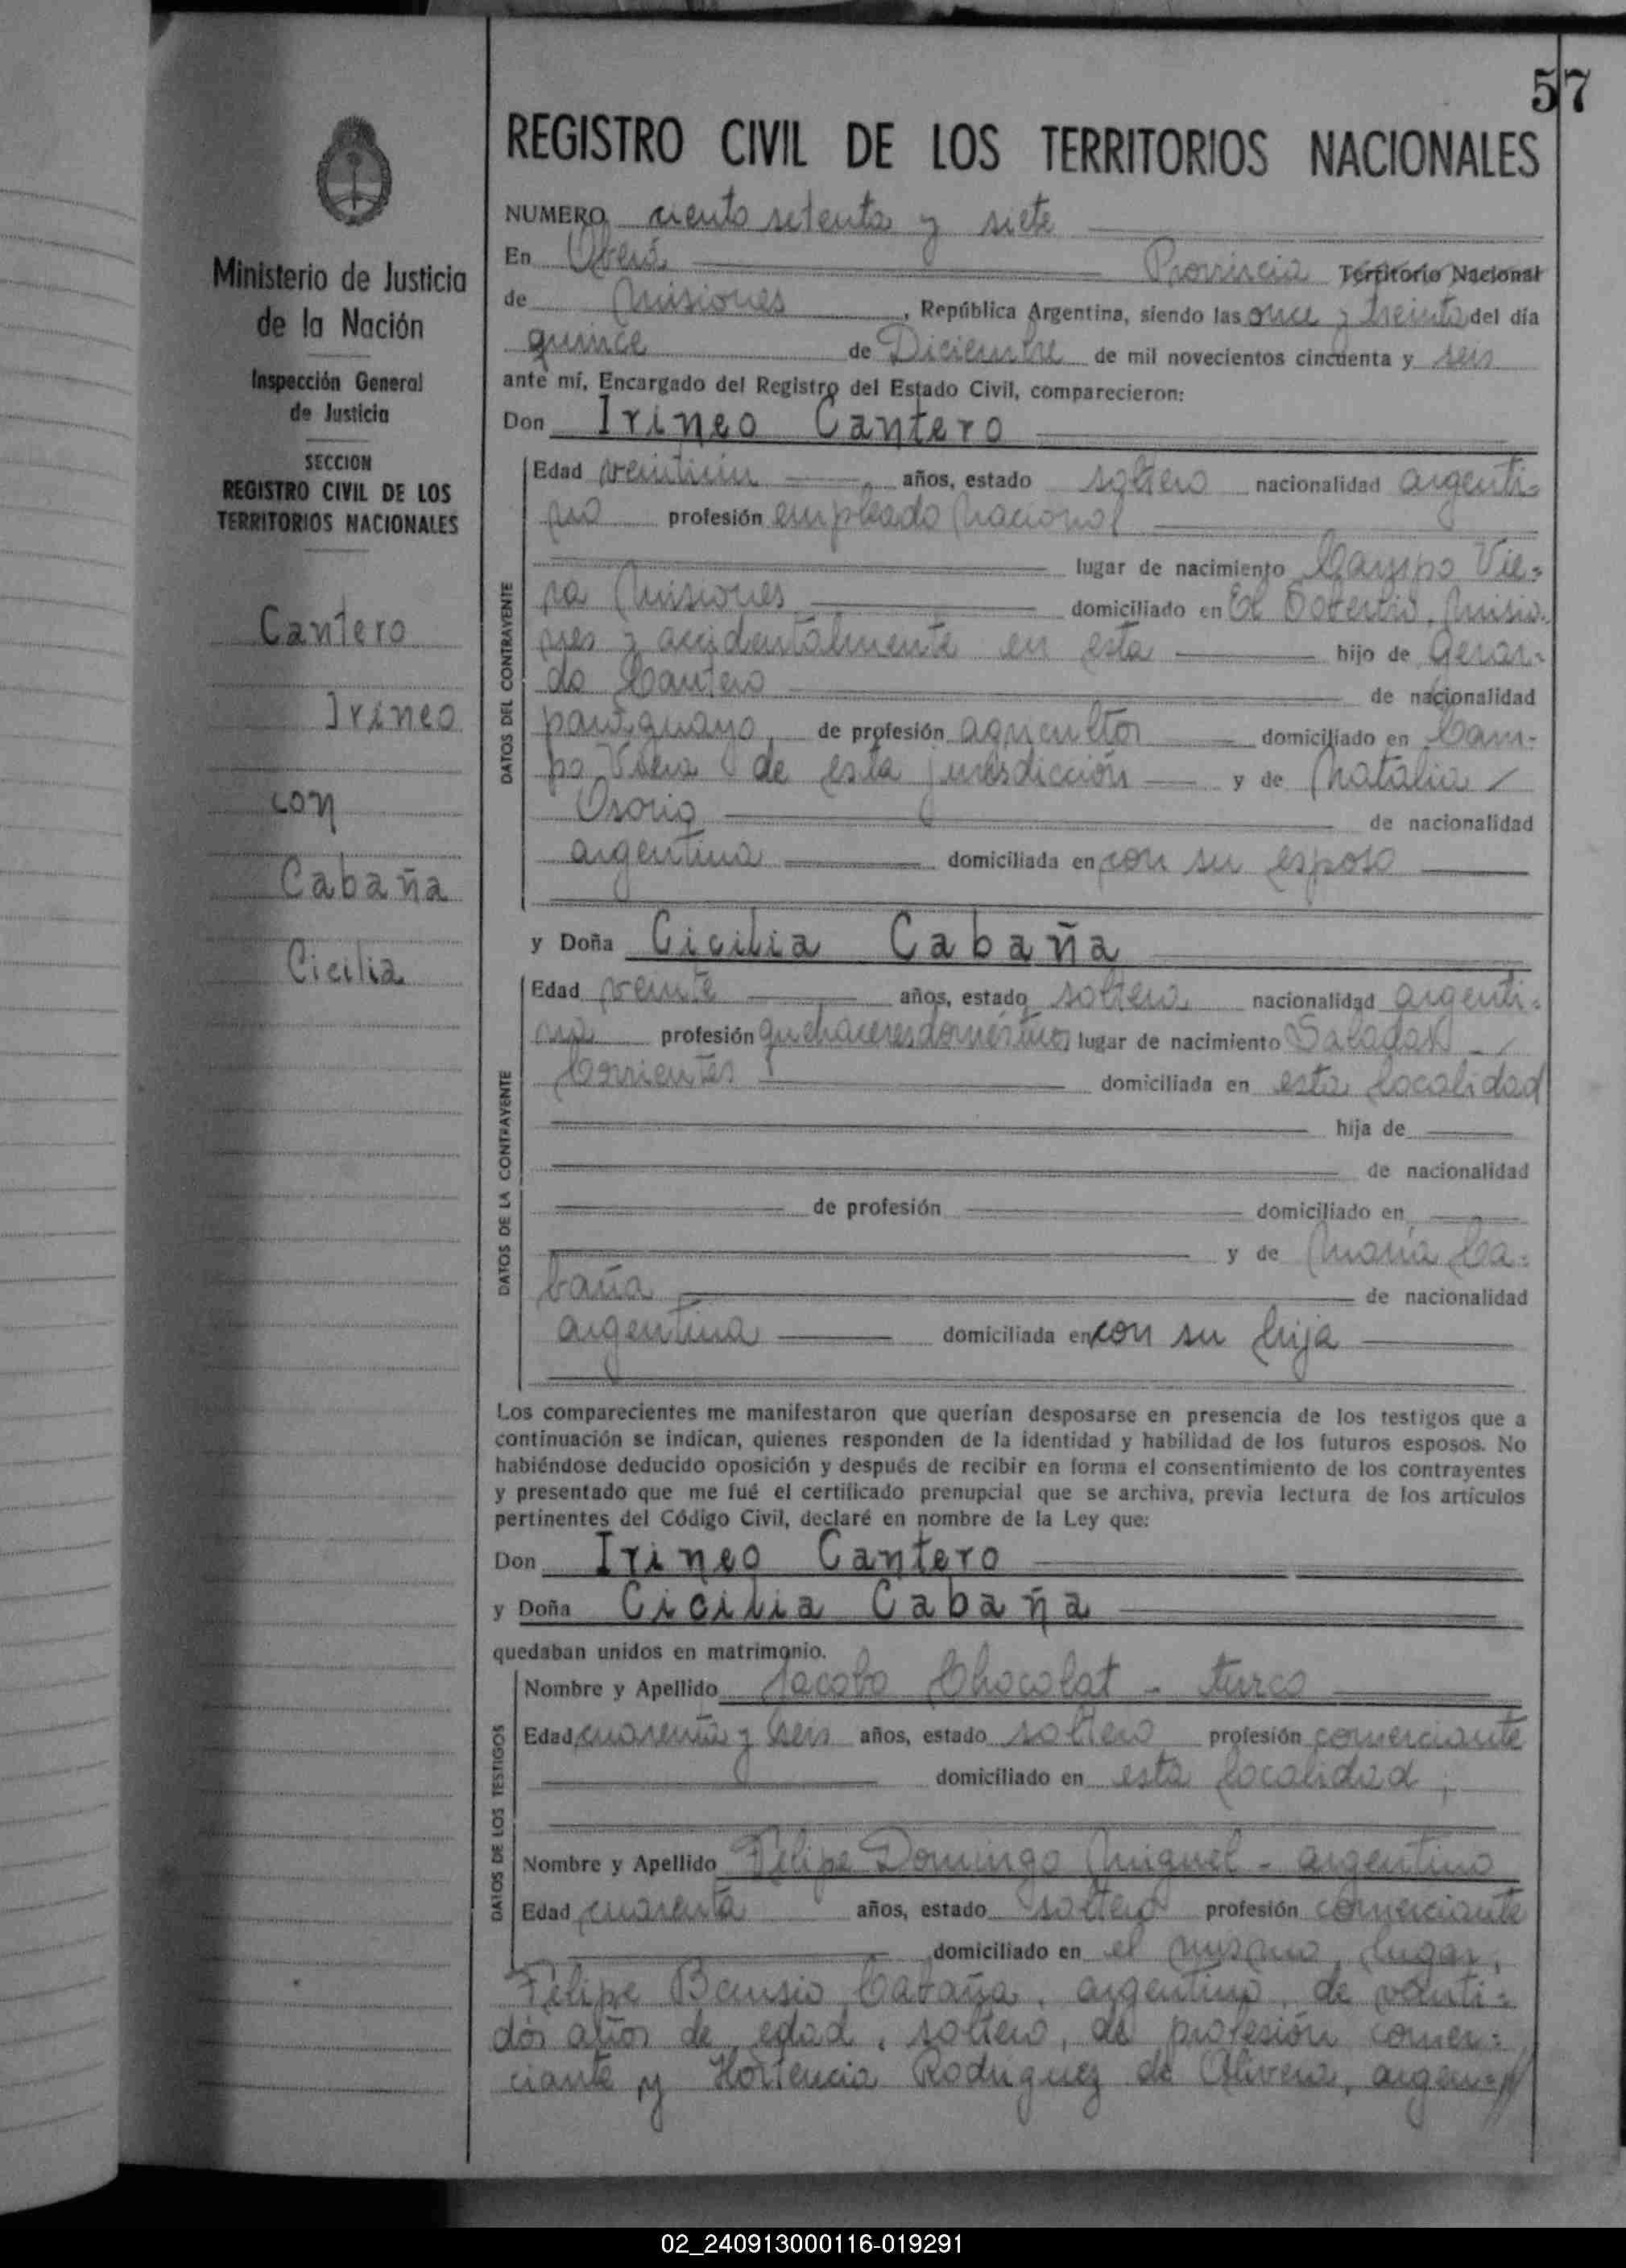 57
REGISTRO CIVIL DE LOS TERRITORIOS NACIONALES
NUMERO ciento setenta y siete
En Oberá Provincia Territorio Nacional
de Misiones, República Argentina, siendo las once y treinta del día
quince de Diciembre de mil novecientos cincuenta y seis
ante mí, Encargado del Registro del Estado Civil, comparecieron:
Don Irineo Cantero
Ministerio de Justicia
de la Nación
Inspección General
de Justicia
SECCION
REGISTRO CIVIL DE LOS
TERRITORIOS NACIONALES
Cantero
Irineo
con
Cabaña
Cicilia
DATOS DEL CONTRAYENTE
Edad veintiún años, estado soltero nacionalidad argenti-
no profesión empleado nacional
lugar de nacimiento Campo Vie-
ra Misiones domiciliado en El Soberbio, Misio-
nes y accidentalmente en esta hijo de Gerar-
do Cantero de nacionalidad
paraguayo, de profesión agricultor domiciliado en Cam-
po Viera de esta jurisdicción y de Natalia
Osorio de nacionalidad
argentina domiciliada en con su esposo
y Doña Cicilia Cabaña
DATOS DE LA CONTRAYENTE
Edad veinte años, estado soltera nacionalidad argenti-
na profesión quehaceres domésticos lugar de nacimiento Saladas
Corrientes domiciliada en esta localidad
hija de
de nacionalidad
de profesión domiciliado en
y de María Ca-
baña de nacionalidad
argentina domiciliada en con su hija
Los comparecientes me manifestaron que querían desposarse en presencia de los testigos que a
continuación se indican, quienes responden de la identidad y habilidad de los futuros esposos. No
habiéndose deducido oposición y después de recibir en forma el consentimiento de los contrayentes
y presentado que me fué el certificado prenupcial que se archiva, previa lectura de los artículos
pertinentes del Código Civil, declaré en nombre de la Ley que:
Don Irineo Cantero
y Doña Cicilia Cabaña
quedaban unidos en matrimonio.
DATOS DE LOS TESTIGOS
Nombre y Apellido Jacobo Chocolat - turco
Edad cuarenta y seis años, estado soltero profesión comerciante
domiciliado en esta localidad;
Nombre y Apellido Felipe Domingo Miguel - argentino
Edad cuarenta años, estado soltero profesión comerciante
domiciliado en el mismo lugar,
Felipe Cabaña, argentino, de veinti-
dós años de edad, soltero, de profesión comer-
ciante y Hortencia Rodriguez de Olivera, argen-
02_240913000116-019291